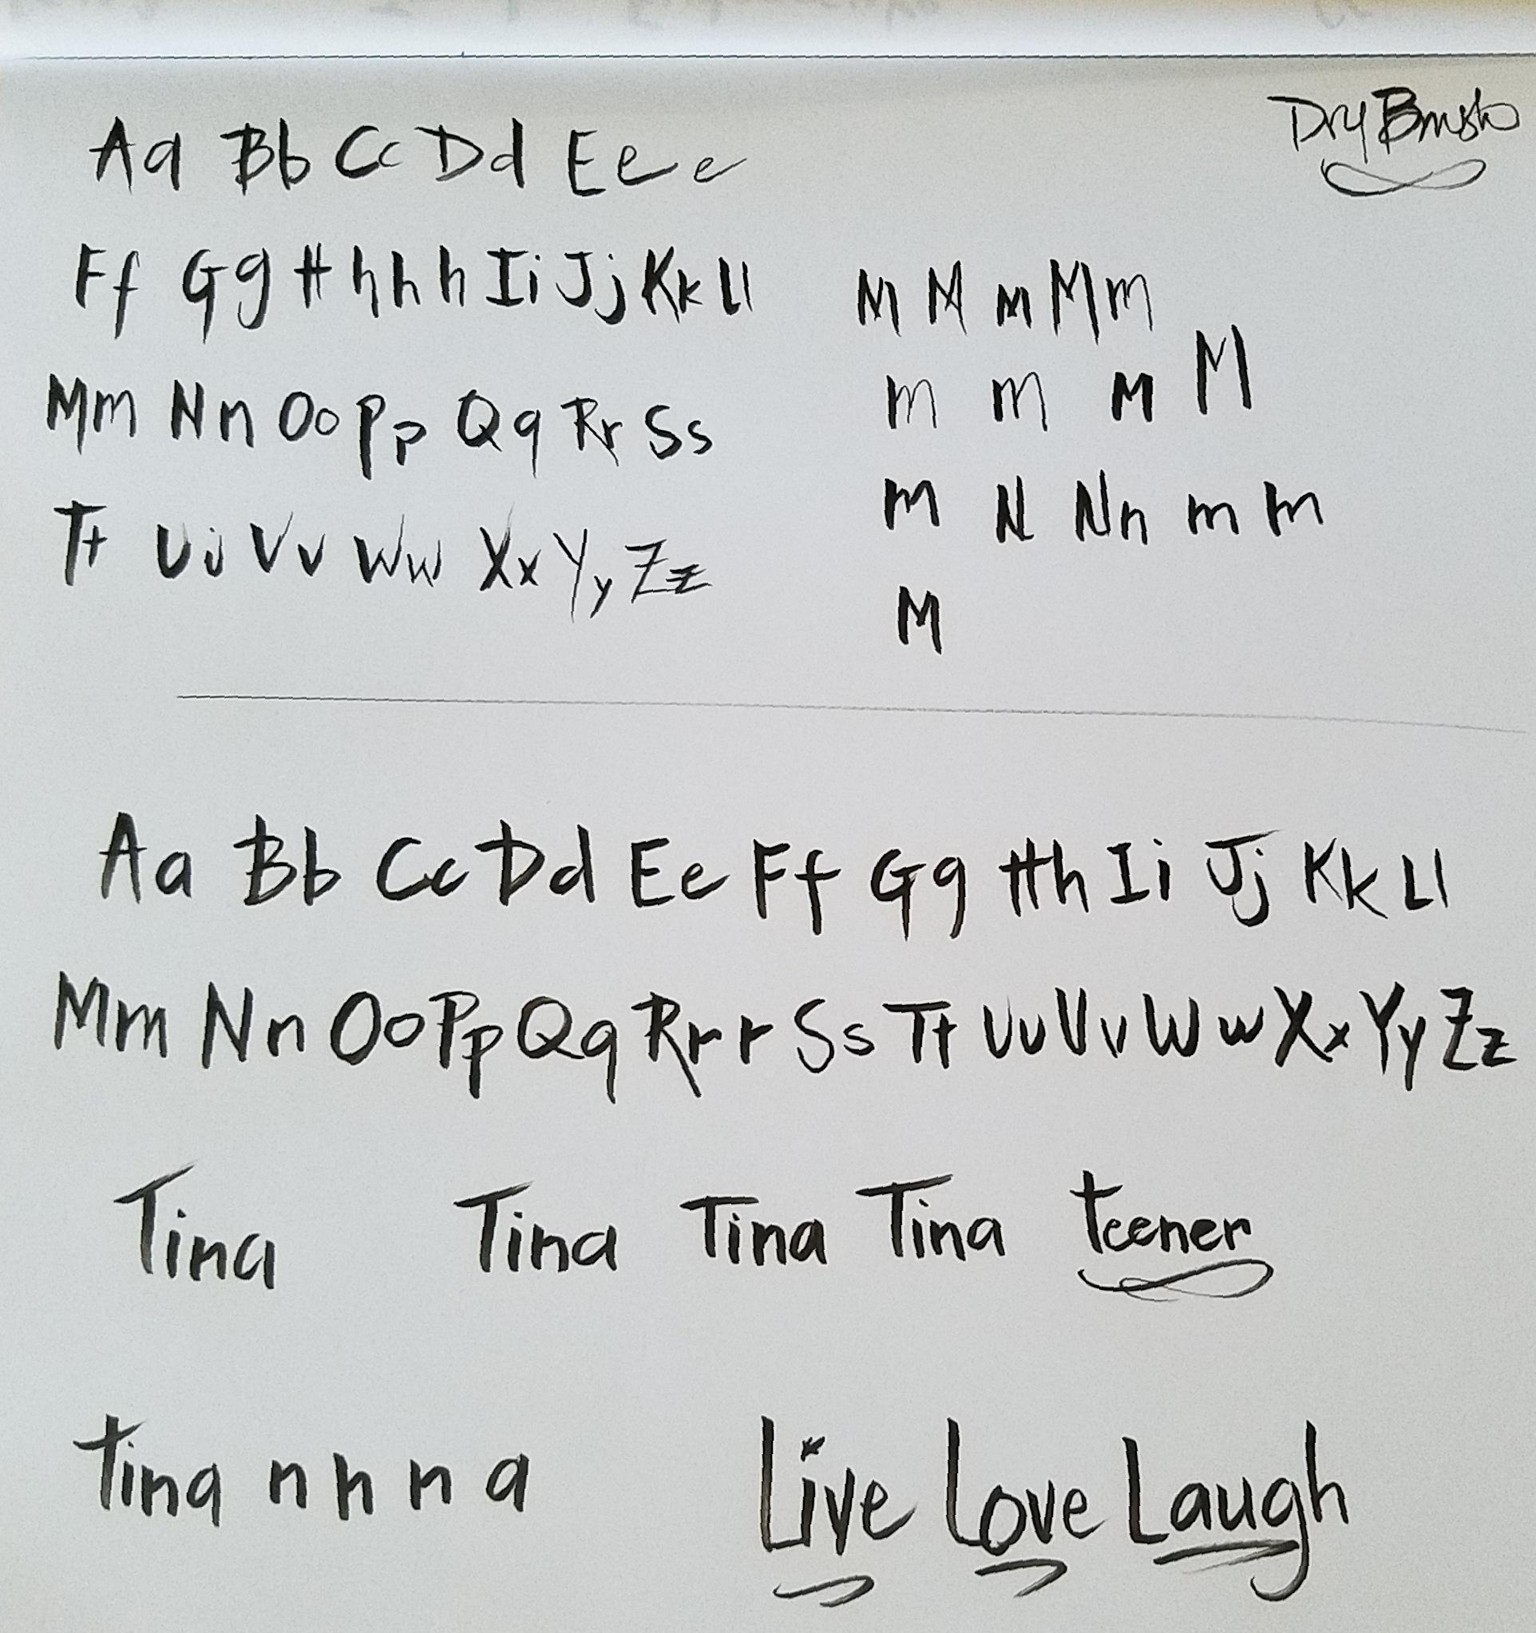 Dry Brush
Aa Bb Cc Dd Ee e
Ff Gg Hh h h Ii Jj Kk Ll
Mm Nn Oo Pp Qq Rr Ss
Tt Uu Vv Ww Xx Yy Zz
M M m M m
m m M M
m N Nn m m
M
Aa Bb Cc Dd Ee Ff Gg Hh Ii Jj Kk Ll
Mm Nn Oo Pp Qq Rr r Ss Tt Uu Vv Ww Xx Yy Zz
Tina Tina Tina Tina teener
tina n n n a
Live Love Laugh